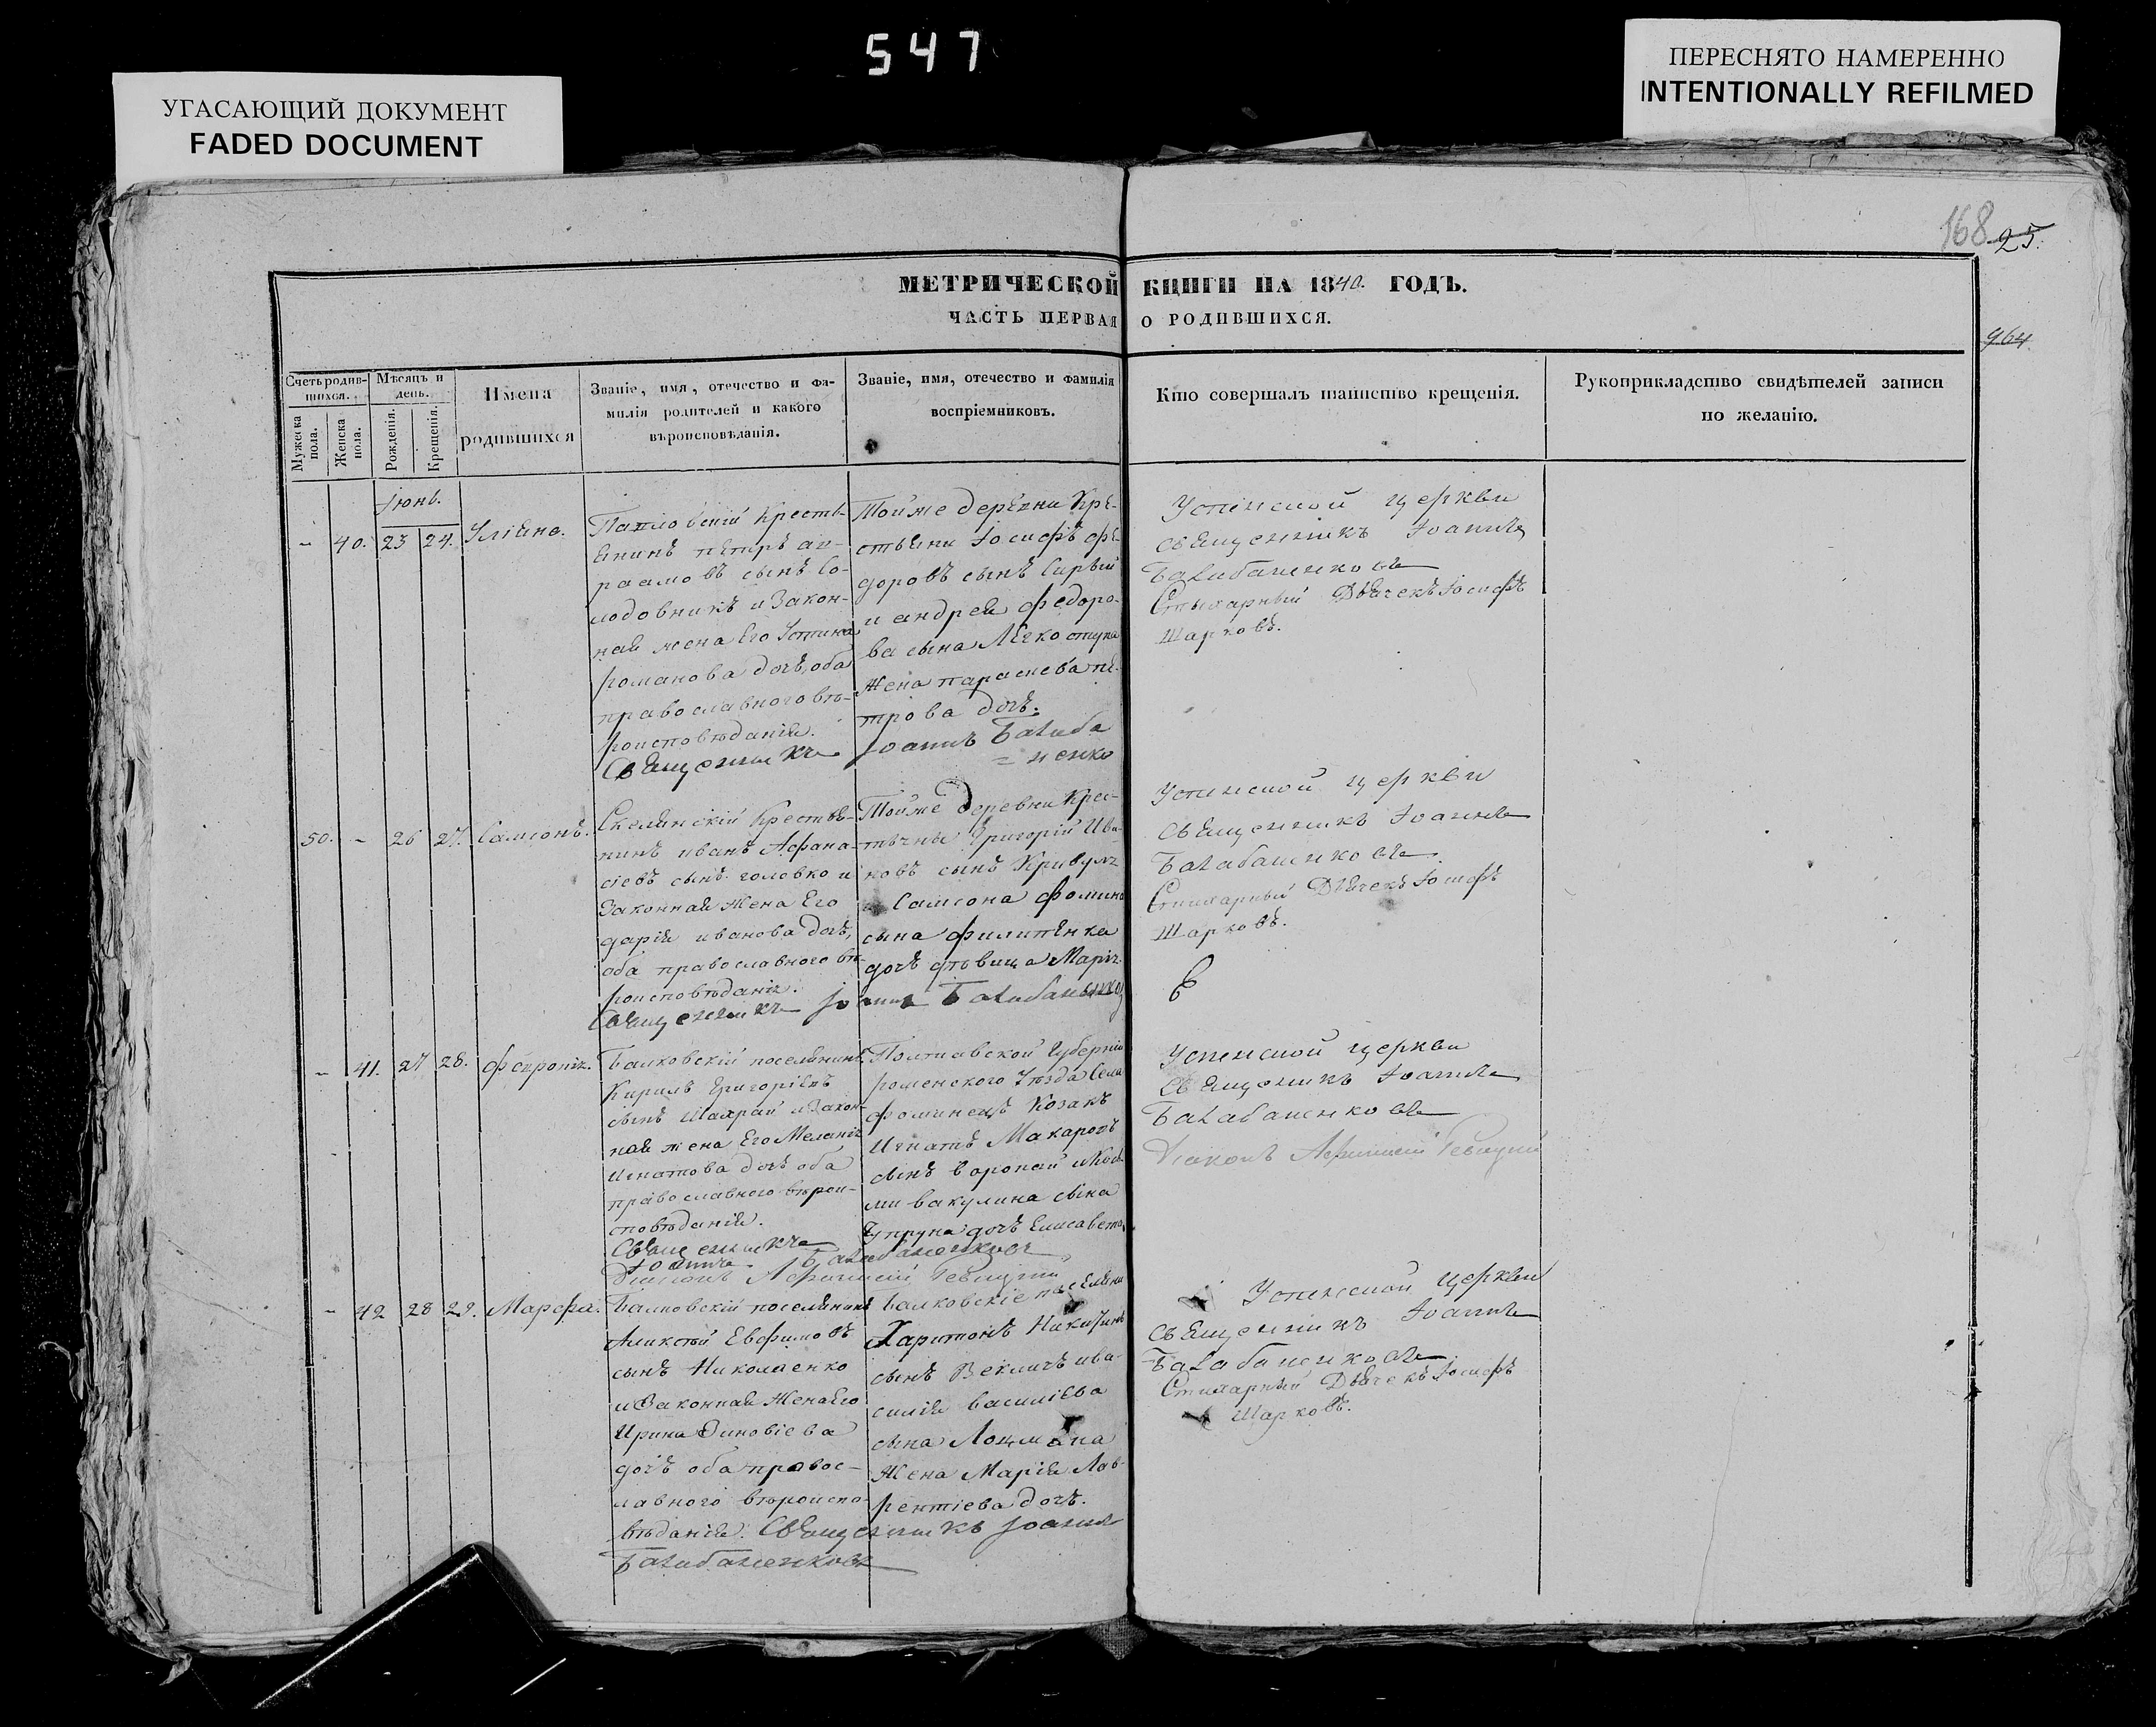 547
ПЕРЕСНЯТО НАМЕРЕННО
INTENTIONALLY REFILMED
УГАСАЮЩИЙ ДОКУМЕНТ
FADED DOCUMENT
168 25.
МЕТРИЧЕСКОЙ КНИГИ НА 1840. ГОДЪ.
ЧАСТЬ ПЕРВАЯ О РОДИВШИХСЯ.
964.
Счетъ родившихся.
Мужеска пола.
Женска пола.
Мѣсяцъ и день.
Рожденія.
Крещенія.
Имена родившихся
Званіе, имя, отечество и фа-
милія родителей и какого
вѣроисповѣданія.
Званіе, имя, отечество и фамилія
воспріемниковъ.
Кто совершалъ таинство крещенія.
Рукоприкладство свидѣтелей записи
по желанію.
Іюнь.
- 40. 23 24. Уліяна.
Павловскій Кресть-
янинъ Петръ ав-
раамовъ сынъ Со-
лодовникъ и Закон-
ная жена Его Устина
романова дочь, оба
православного вѣ-
роисповѣданія.
Священникъ Іоаннъ Балаба
=ненко
Тойже деревни Кре-
стьяни Іосифъ фе-
доровъ сынъ Сирый
и андрея федоро-
ва сына Легкоступа
Жена параскева пе-
трова дочь.
Успенской церкви
священникъ Іоаннъ
Балабаненковъ
Стихарный Дьячекъ Іосифъ
Шарковъ.
50. - 26 27. Самсонъ.
Скелянскій Крестья-
нинъ иванъ Афана-
сіевъ сынъ головко и
Законная Жена Его
дарія иванова дочь,
оба православного вѣ-
роисповѣданія.
Священникъ Іоаннъ Балабаненковъ
Тойже Деревни Крес-
тьяни Григорій Ива-
новъ сынъ Кривуля
и Самсона фомина
сына филипенка
дочь дѣвица Марія.
Успенской церкви
священникъ Іоаннъ
Балабаненковъ.
Стихарный Дьячекъ Іосифъ
Шарковъ.
- 41. 27 28. Феѵронія.
Балковскій поселянинъ
Кирилъ Григоріевъ
сынъ Шахрай и Закон-
ная жена Его Меланія
Игнатова дочь оба
православного вѣрои-
сповѣданія.
Священникъ
Іоаннъ Балабаненковъ
Полтавской Губерніи
роменского Уѣзда Села
фоминецъ Козакъ
Игнатъ Макаровъ
сынъ воропай и Кось-
ми вакулина сына
Чупруна дочь Елисавета.
Успенской церкви
священникъ Іоаннъ
Балабаненковъ
- 42 28 29. Марфа.
Балковскій поселянинъ
Аликсѣй Евфимовъ
сынъ Николаенко
и Законная Жена Его
Ирина Зиновіева
дочь оба правос-
лавного вѣроиспо-
вѣданія. Священникъ Іоаннъ
Балабаненковъ
Балковскіе поселяни
Харитонъ Никитинъ
сынъ Векличъ и ва-
силія василіева
сына Лоцмана
Жена Марія Лав-
рентіева дочь.
Успенской церкви
священникъ Іоаннъ
Балабаненковъ
Стихарный Дьячекъ Іосифъ
Шарковъ.